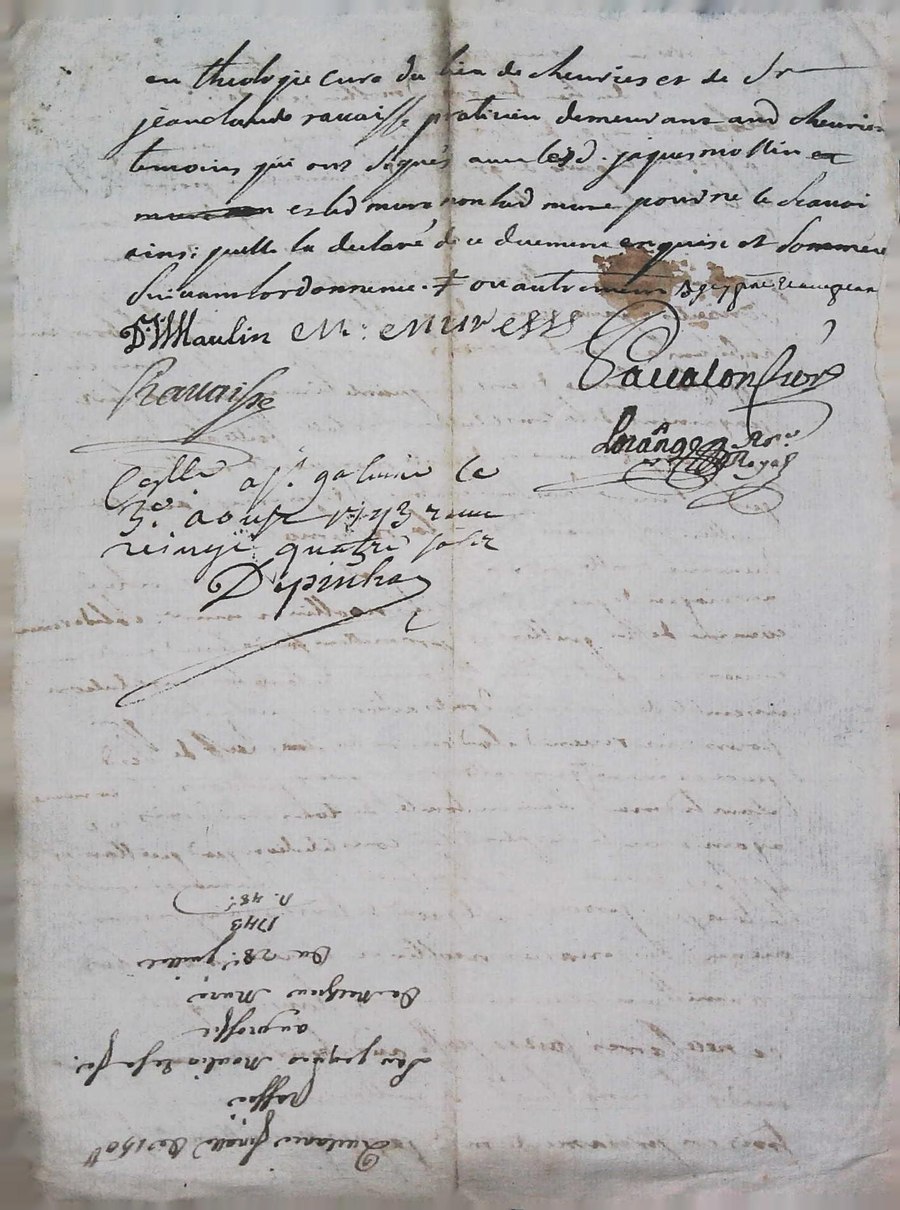 en theologie cure du lieu de cheurieres et de Sr
jean claude rauaisse praticien demeurant aud cheurier
temoins qui ont signés auec lesd. jaques mollin et
et lad mure non lad mure pour ne le scauoi
ainsi quelle la declaré de ce duement enquise et sommée
suiuant lordonnence. ou autrement
D. J. Maulin M: Mure
Rauaisse
Pacalon Curé
Lorange Nore
Royal
Collé a St galmier le
3e. aoust 1743 receu
veingt quatre sols
Depinhac
Quitance finalle de 150ᵗᵗ
passée
Par Jaques Moulin
au proffit
De Mure
Du 28e. juillet
1743
n. 48.